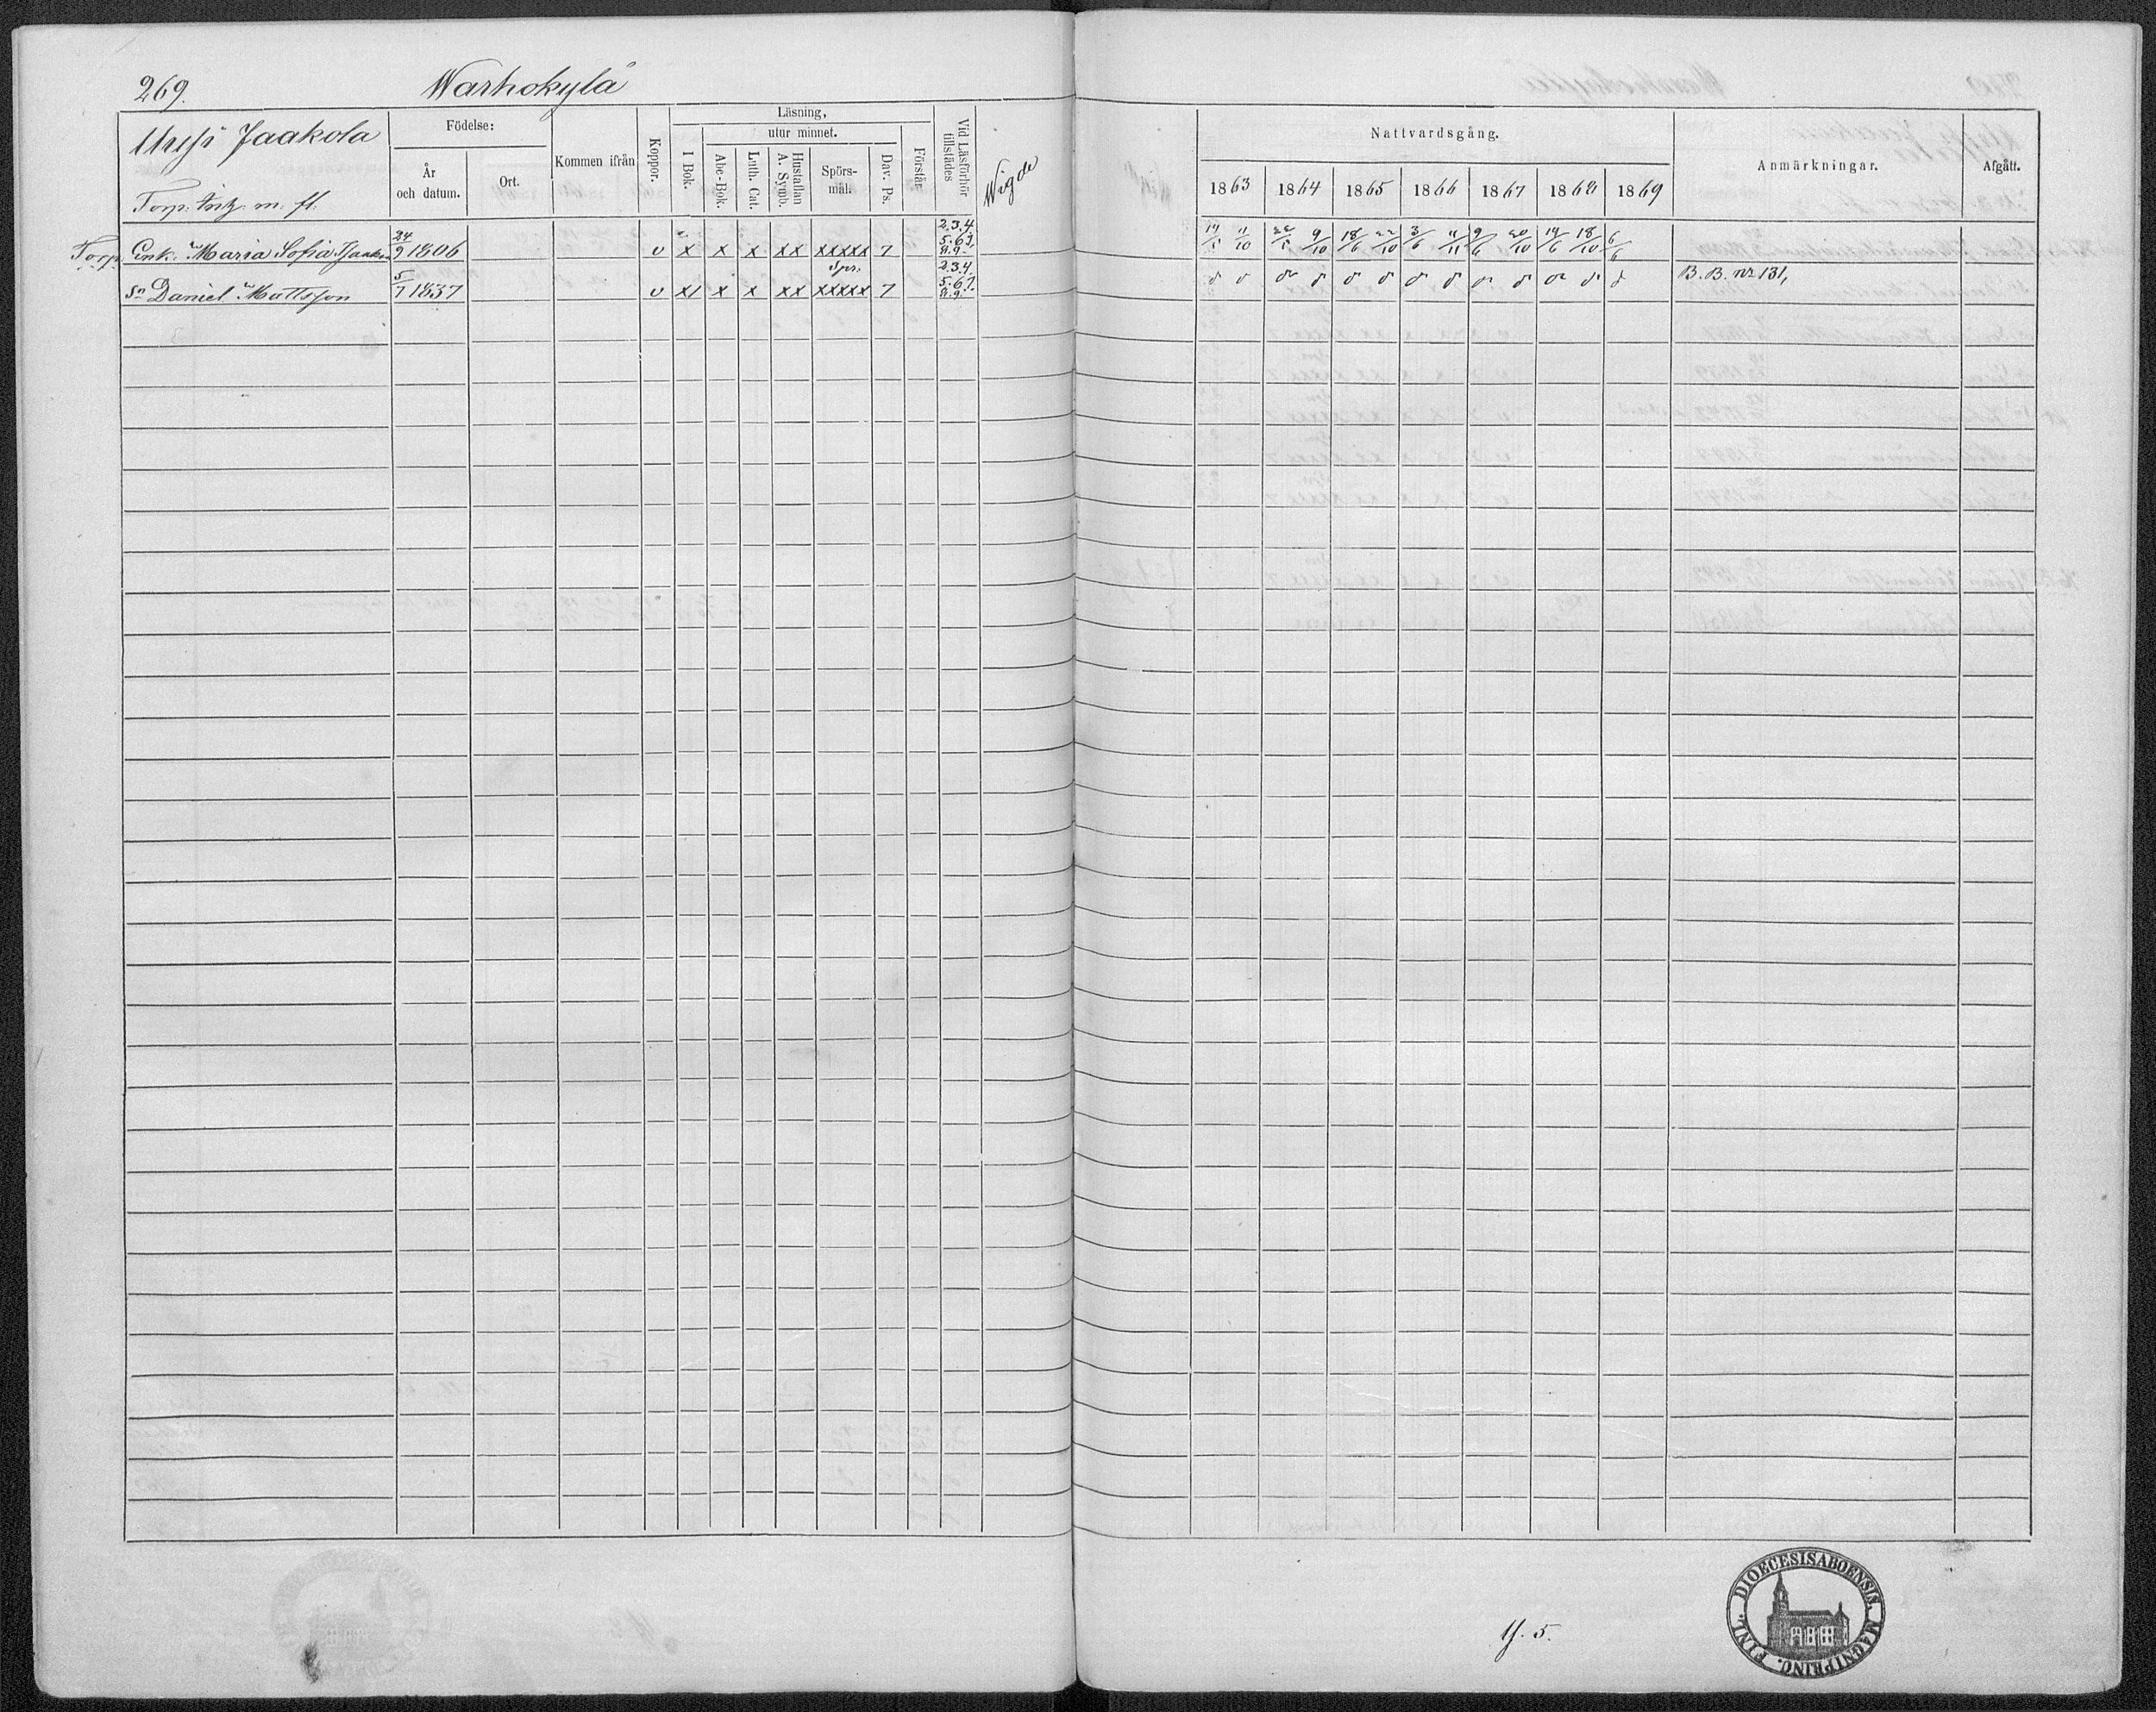 269.
Warhokylä
Jaakola
Torp. m. fl.
Födelse:
År och datum.
Ort.
Kommen ifrån
Koppor.
Läsning,
I Bok.
utur minnet.
Abc-Bok.
Luth. Cat.
Hustaflan A. Symb.
Spörs-mål.
Dav. Ps.
Förstår
Vid Läsförhör tillstädes
Wigde
Nattvardsgång.
1863 1864 1865 1866 1867 1868 1869
Anmärkningar.
Afgått.
Torp. Enk. Maria Sofia 24/9 1806 v x x x xx xxxxx 7 2.3.4. 5.6.7. 8.9. 11/10 9/10 18/6 22/10 3/6 11/11 9/6 20/10 14/6 18/10 6/6
Sn Daniel Mattsson 5/7 1837 v x1 x x xx xxxxx 7 2.3.4. 5.6.7. 8.9. B. B. nr 131,
5.
DIOECESIS ABOENSIS. MAGNI PRINC. FINL.